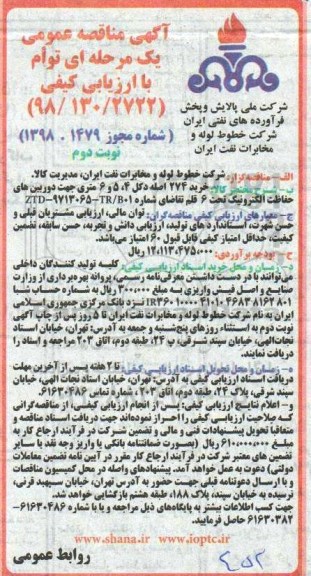 آگهی مناقصه عمومی
یک مرحله ای توأم
با ارزیابی کیفی
(۹۸/ ۱۳۰/۲۷۲۲)
(شماره مجوز ۱۴۷۹ . ۱۳۹۸)
نوبت دوم
شرکت ملی پالایش و پخش
فرآورده های نفتی ایران
شرکت خطوط لوله و
مخابرات نفت ایران
الف- مناقصه گزار: شرکت خطوط لوله و مخابرات نفت ایران، مدیریت کالا.
ب- شرح مختصر کالا: خرید ۲۷۴ اصله دکل ۴، ۵ و ۶ متری جهت دوربین های
حفاظت الکترونیک تحت ۶ قلم تقاضای شماره ZTD-۹۷۱۳۰۶۵-TR/B۰۱
ج- معیارهای ارزیابی کیفی مناقصه گران: توان مالی، ارزیابی مشتریان قبلی و
حسن شهرت، استانداردهای تولید، ارزیابی دانش و تجربه، حسن سابقه، تضمین
کیفیت، حداقل امتیاز کیفی قابل قبول ۶۰ امتیاز می باشد.
ح- بودجه برآوردی: ۱۲،۱۱۳،۴۷۵،۰۰۰ ریال
د- زمان و محل خرید اسناد ارزیابی کیفی: کلیه تولید کنندگان داخلی
می توانند با در دست داشتن معرفی نامه رسمی، پروانه بهره برداری از وزارت
صنایع و اصل فیش واریزی به مبلغ ۳۰۰،۰۰۰ ریال به شماره حساب شبا
IR۳۶۰۱۰۰۰۰۴۱۰۱۰۴۶۸۳۸۱۶۲۸۰۱ نزد بانک مرکزی جمهوری اسلامی
ایران به نام شرکت خطوط لوله و مخابرات نفت ایران تا ۵ روز پس از چاپ آگهی
نوبت دوم به استثناء روزهای پنج شنبه و جمعه به آدرس: تهران، خیابان استاد
نجات الهی، خیابان سپند شرقی، پ ۲۴، طبقه دوم، اتاق ۲۰۳ مراجعه و اسناد را
دریافت نمایند.
ه- زمان و محل تحویل اسناد ارزیابی کیفی: تا ۲ هفته پس از آخرین مهلت
دریافت اسناد ارزیابی کیفی به آدرس: تهران، خیابان استاد نجات الهی، خیابان
سپند شرقی، پلاک ۲۴، طبقه دوم، اتاق ۲۰۳، شماره تماس ۶۱۶۳۰۴۸۶
و - اعلام نتایج ارزیابی کیفی: پس از انجام ارزیابی کیفی، از مناقصه گرانی
که صلاحیت ارزیابی کیفی را احراز نموده اند جهت دریافت اسناد مناقصه و
متعاقبا تحویل پیشنهادات فنی و مالی و تضمین شرکت در فرآیند ارجاع کار به
مبلغ ۶۱۰،۰۰۰،۰۰۰ ریال (بصورت ضمانتنامه بانکی یا واریز وجه نقد یا سایر
تضمین های معتبر شرکت در فرآیند ارجاع کار مقرر در آیین نامه تضمین معاملات
دولتی) دعوت به عمل خواهد آمد. پیشنهادهای واصله در محل کمیسیون مناقصات
و با ارسال دعوتنامه قبلی جهت حضور به آدرس تهران، خیابان سپهبد قرنی،
نرسیده به خیابان سپند، پلاک ۱۸۸، طبقه هشتم بازگشایی خواهد شد.
جهت کسب اطلاعات بیشتر به پایگاه های ذیل مراجعه و یا با شماره ۶۱۶۳۰۴۸۶-
۶۱۶۳۰۳۸۲ حاصل فرمایید.
www.shana.ir www.ioptc.ir
روابط عمومی